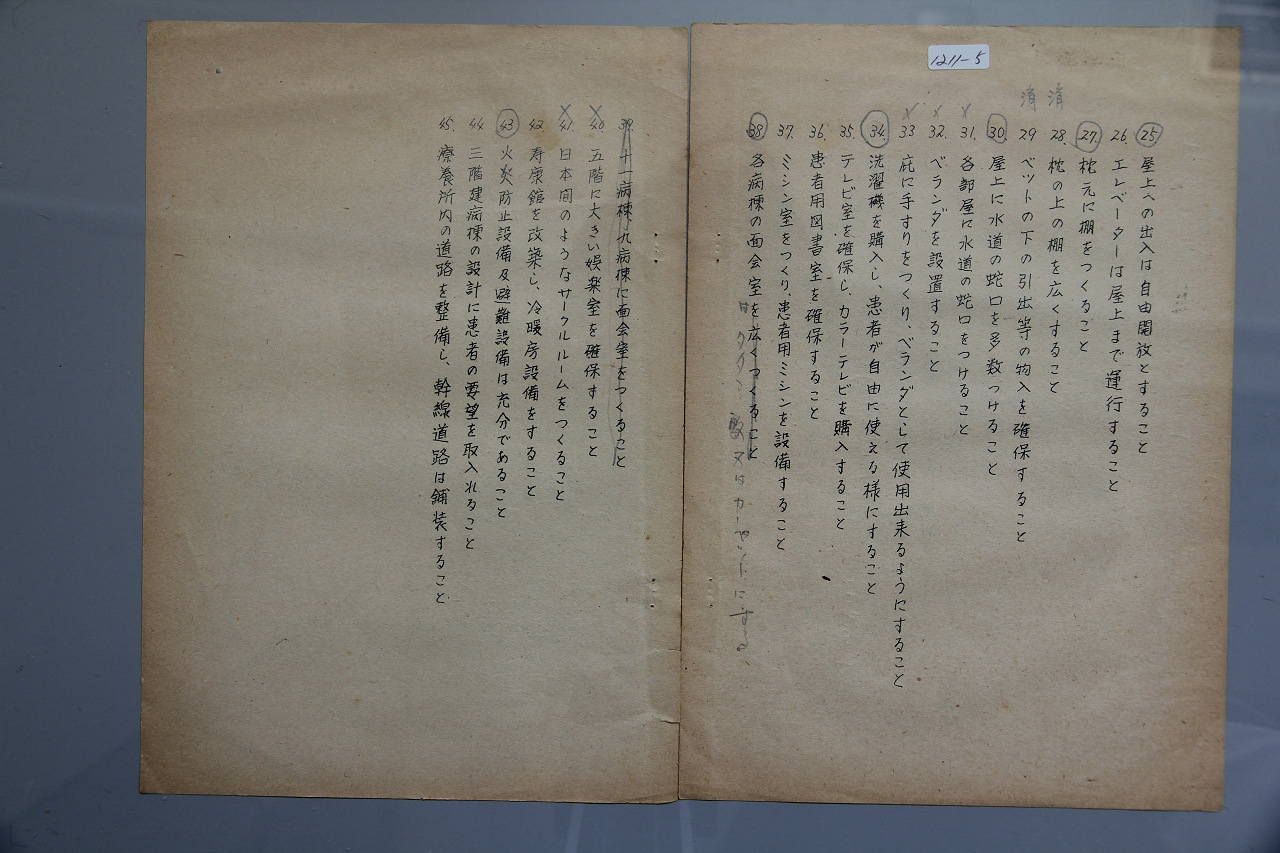 1211-5
済 済
25. 屋上への出入は自由開放とすること
26. エレベーターは屋上まで運行すること
27. 枕元に棚をつくること
28. 枕の上の棚を広くすること
29 ベットの下の引出等の物入を確保すること
30 屋上に水道の蛇口を多数つけること
31. 各部屋に水道の蛇口をつけること
32. ベランダを設置すること
33 庇に手すりをつくり、ベランダとして使用出来るようにすること
34. 洗濯機を購入し、患者が自由に使える様にすること
35. テレビ室を確保し、カラーテレビを購入すること
36. 患者用図書室を確保すること
37. ミシン室をつくり、患者用ミシンを設備すること
38. 各病棟の面会室を広くつくること
又はカーペットにする
39. 十一病棟九病棟に面会室をつくること
40. 五階に大きい娯楽室を確保すること
41. 日本間のようなサークルルームをつくること
42 寿康館を改築し、冷暖房設備をすること
43 火災防止設備及避難設備は充分であること
44 三階建病棟の設計に患者の要望を取入れること
45. 療養所内の道路を整備し、幹線道路は鋪装すること